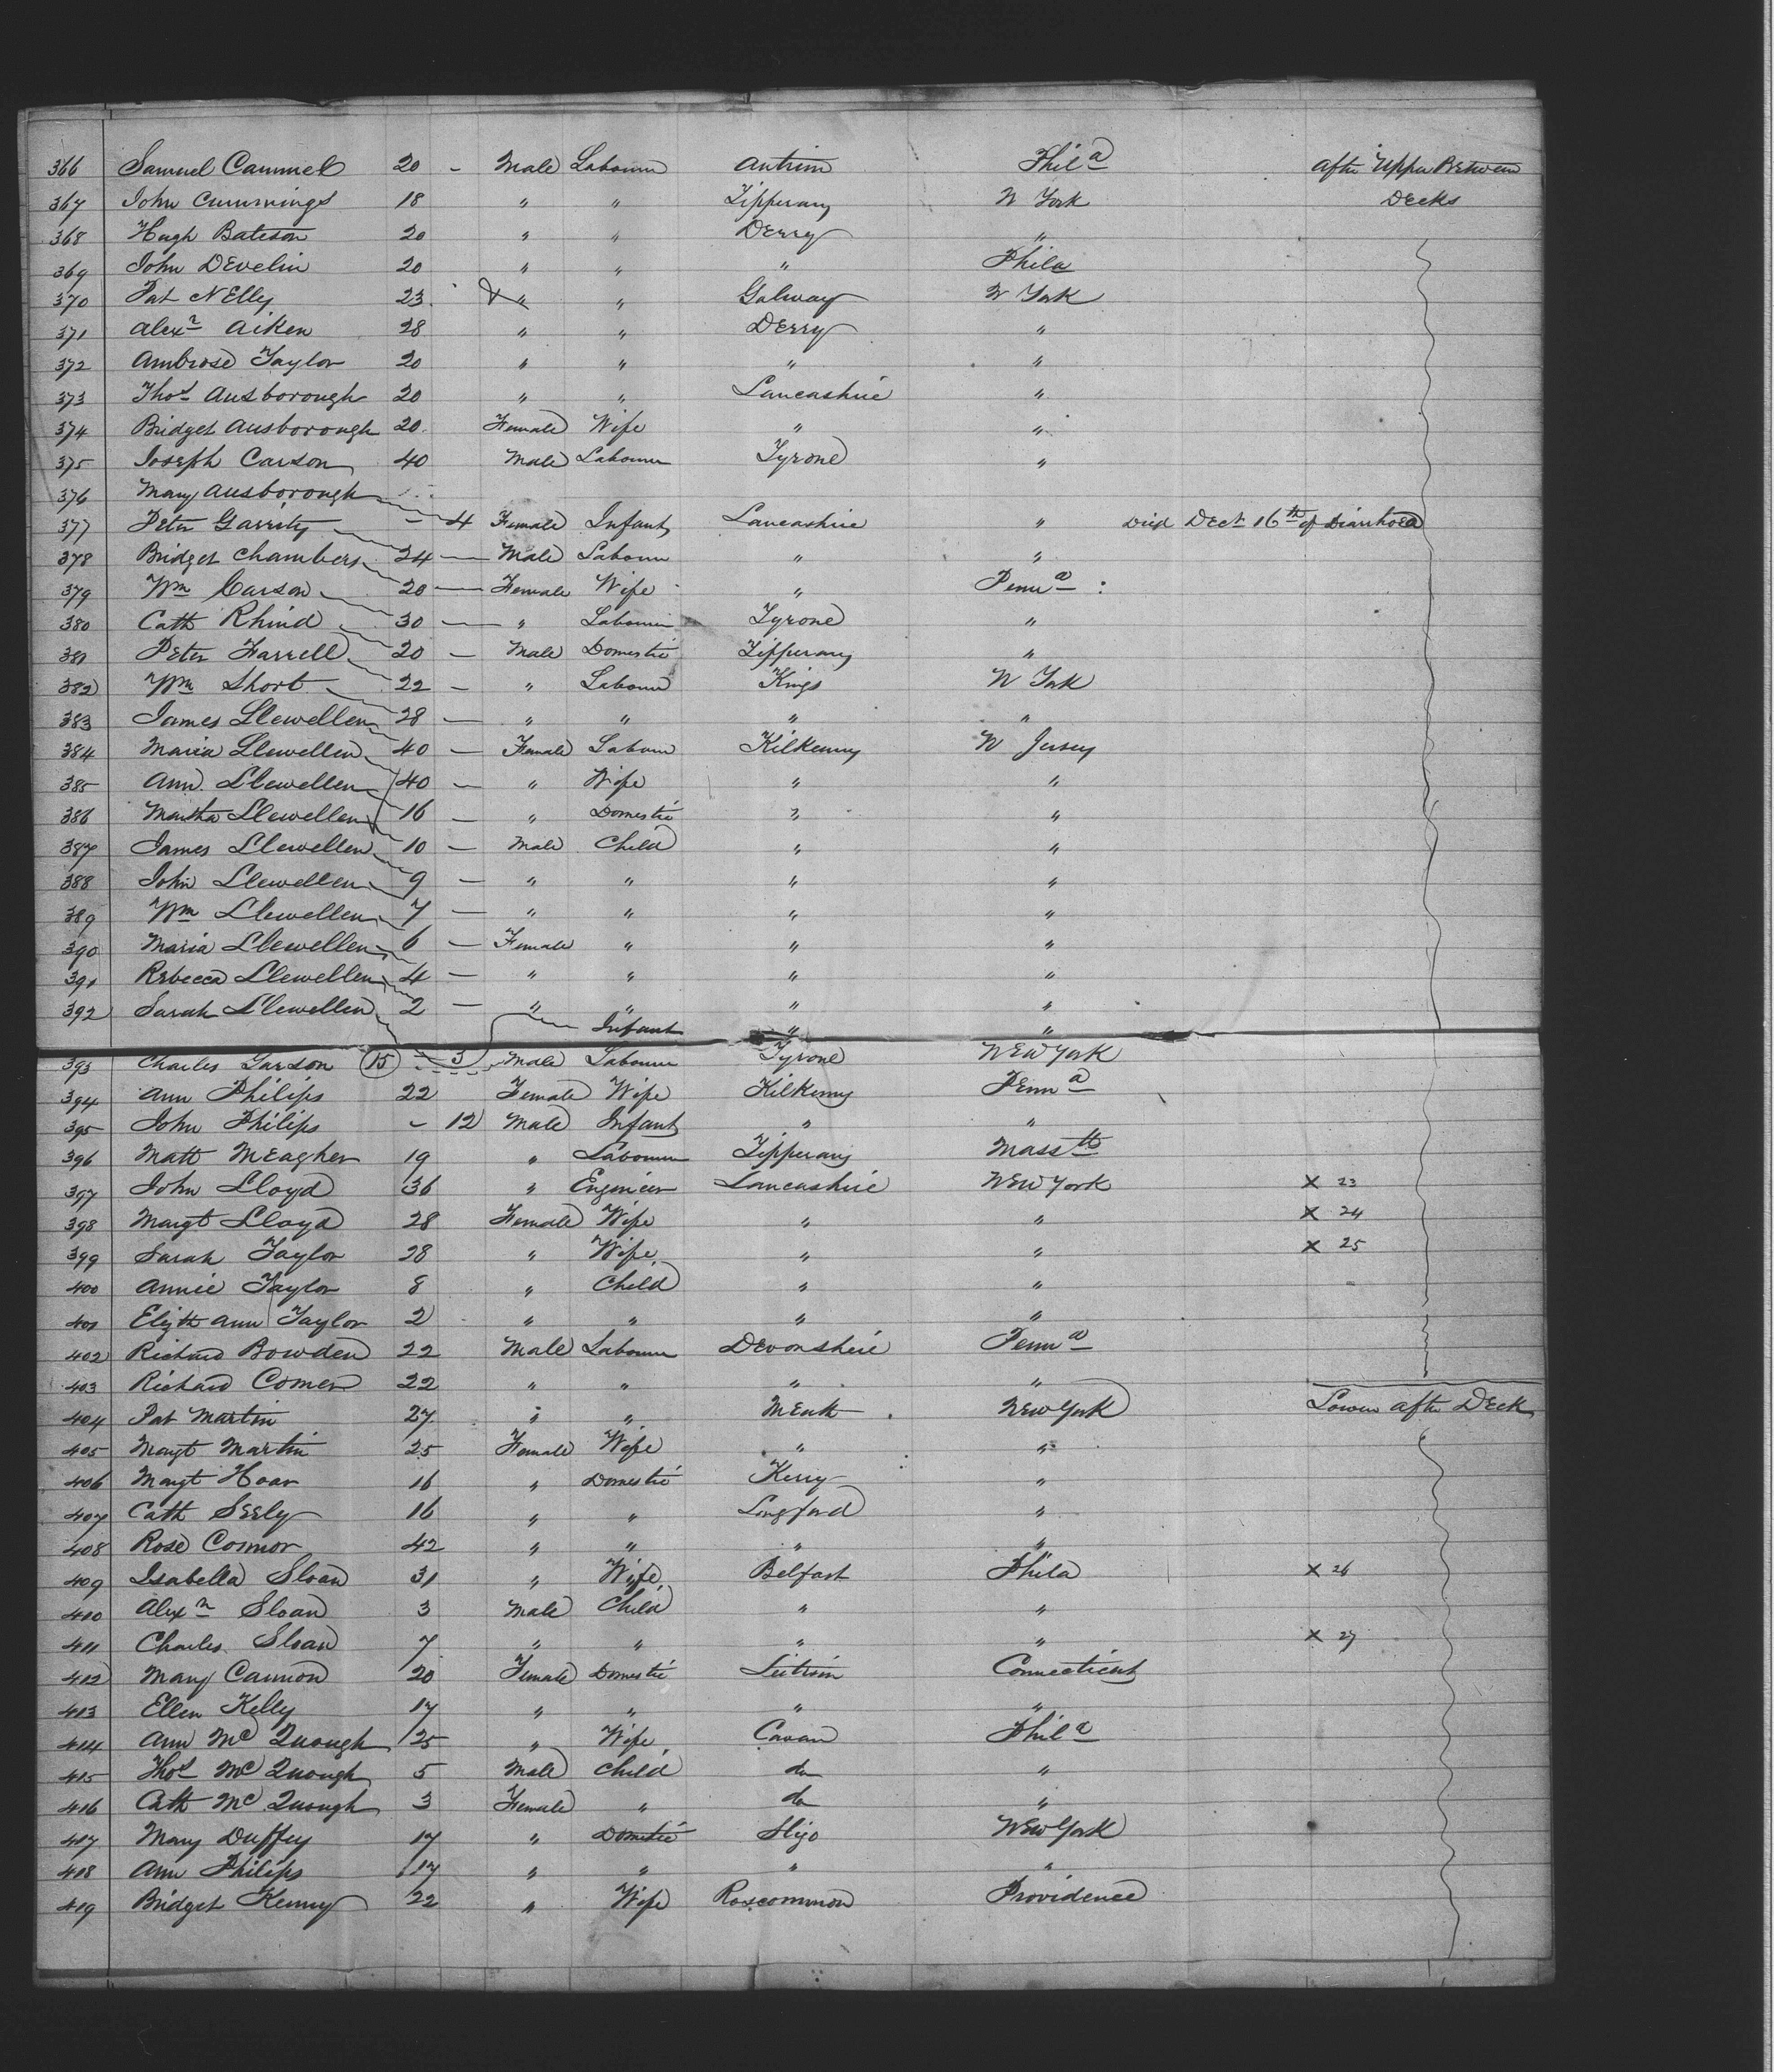 366 Samuel Cammel 20 – Male Labourer Antrim Phila After Upper Between
367 John Cummings 18 " " Tipperary N York Decks
368 Hugh Bateson 20 " " Derry "
369 John Develin 20 " " " Phila
370 Pat Nelly 23 " " Galway N York
371 Alexr Aiken 28 " " Derry "
372 Ambrose Taylor 20 " " " "
373 Thos Ausborough 20 " " Lancashire "
374 Bridget Ausborough 20 Female Wife " "
375 Joseph Carson 40 Male Labourer Tyrone "
376 Mary Ausborough
377 Peter Garrity – 4 Female Infant Lancashire " Died Decr 16th of Diarrhoea
378 Bridget Chambers 24 – Male Labour " "
379 Wm Carson 20 – Female Wife " Penna
380 Cath Rhind 30 – " Labourer Tyrone "
381 Peter Farrell 20 – Male Domestic Tipperary "
382 Wm Short 22 – " Labour Kings N York
383 James Llewellen 28 – " " " "
384 Maria Llewellen 40 – Female Labour Kilkenny N Jersey
385 Ann Llewellen 40 – " Wife " "
386 Martha Llewellen 16 – " Domestic " "
387 James Llewellen 10 – Male Child " "
388 John Llewellen 9 – " " " "
389 Wm Llewellen 7 – " " " "
390 Maria Llewellen 6 – Female " " "
391 Rebecca Llewellen 4 – " " " "
392 Sarah Llewellen 2 – " " " "
Infant " "
393 Charles Carson 15 – 3 Male Labourer Tyrone New York
394 Ann Philips 22 Female Wife Kilkenny Penna
395 John Philips – 12 Male Infant " "
396 Matt Meagher 19 " Labourer Tipperary Masstts
397 John Lloyd 36 " Engineer Lancashire New York X 23
398 Margt Lloyd 28 Female Wife " " X 24
399 Sarah Taylor 28 " Wife " " X 25
400 Annie Taylor 8 " Child " "
401 Elizth Ann Taylor 2 " " " "
402 Richard Bowden 22 Male Labourer Devonshire Penna
403 Richard Comer 22 " " " "
404 Pat Martin 27 " " Meath New York Lower After Deck
405 Margt Martin 25 Female Wife " "
406 Margt Hoar 16 " Domestic Kerry "
407 Cath Seely 16 " " Longford "
408 Rose Connor 42 " " " "
409 Isabella Sloan 31 " Wife Belfast Phila X 26
410 Alexr Sloan 3 Male Child " "
411 Charles Sloan 7 " " " " X 27
412 Mary Cannon 20 Female Domestic Leitrim Connecticut
413 Ellen Kelly 17 " " " "
414 Ann McQuough 25 " Wife Cavan Phila
415 Thos McQuough 5 Male Child do "
416 Cath McQuough 3 Female " do "
417 Mary Duffey 17 " Domestic Sligo New York
418 Ann Philips 17 " " " "
419 Bridget Kenny 22 " Wife Roscommon Providence